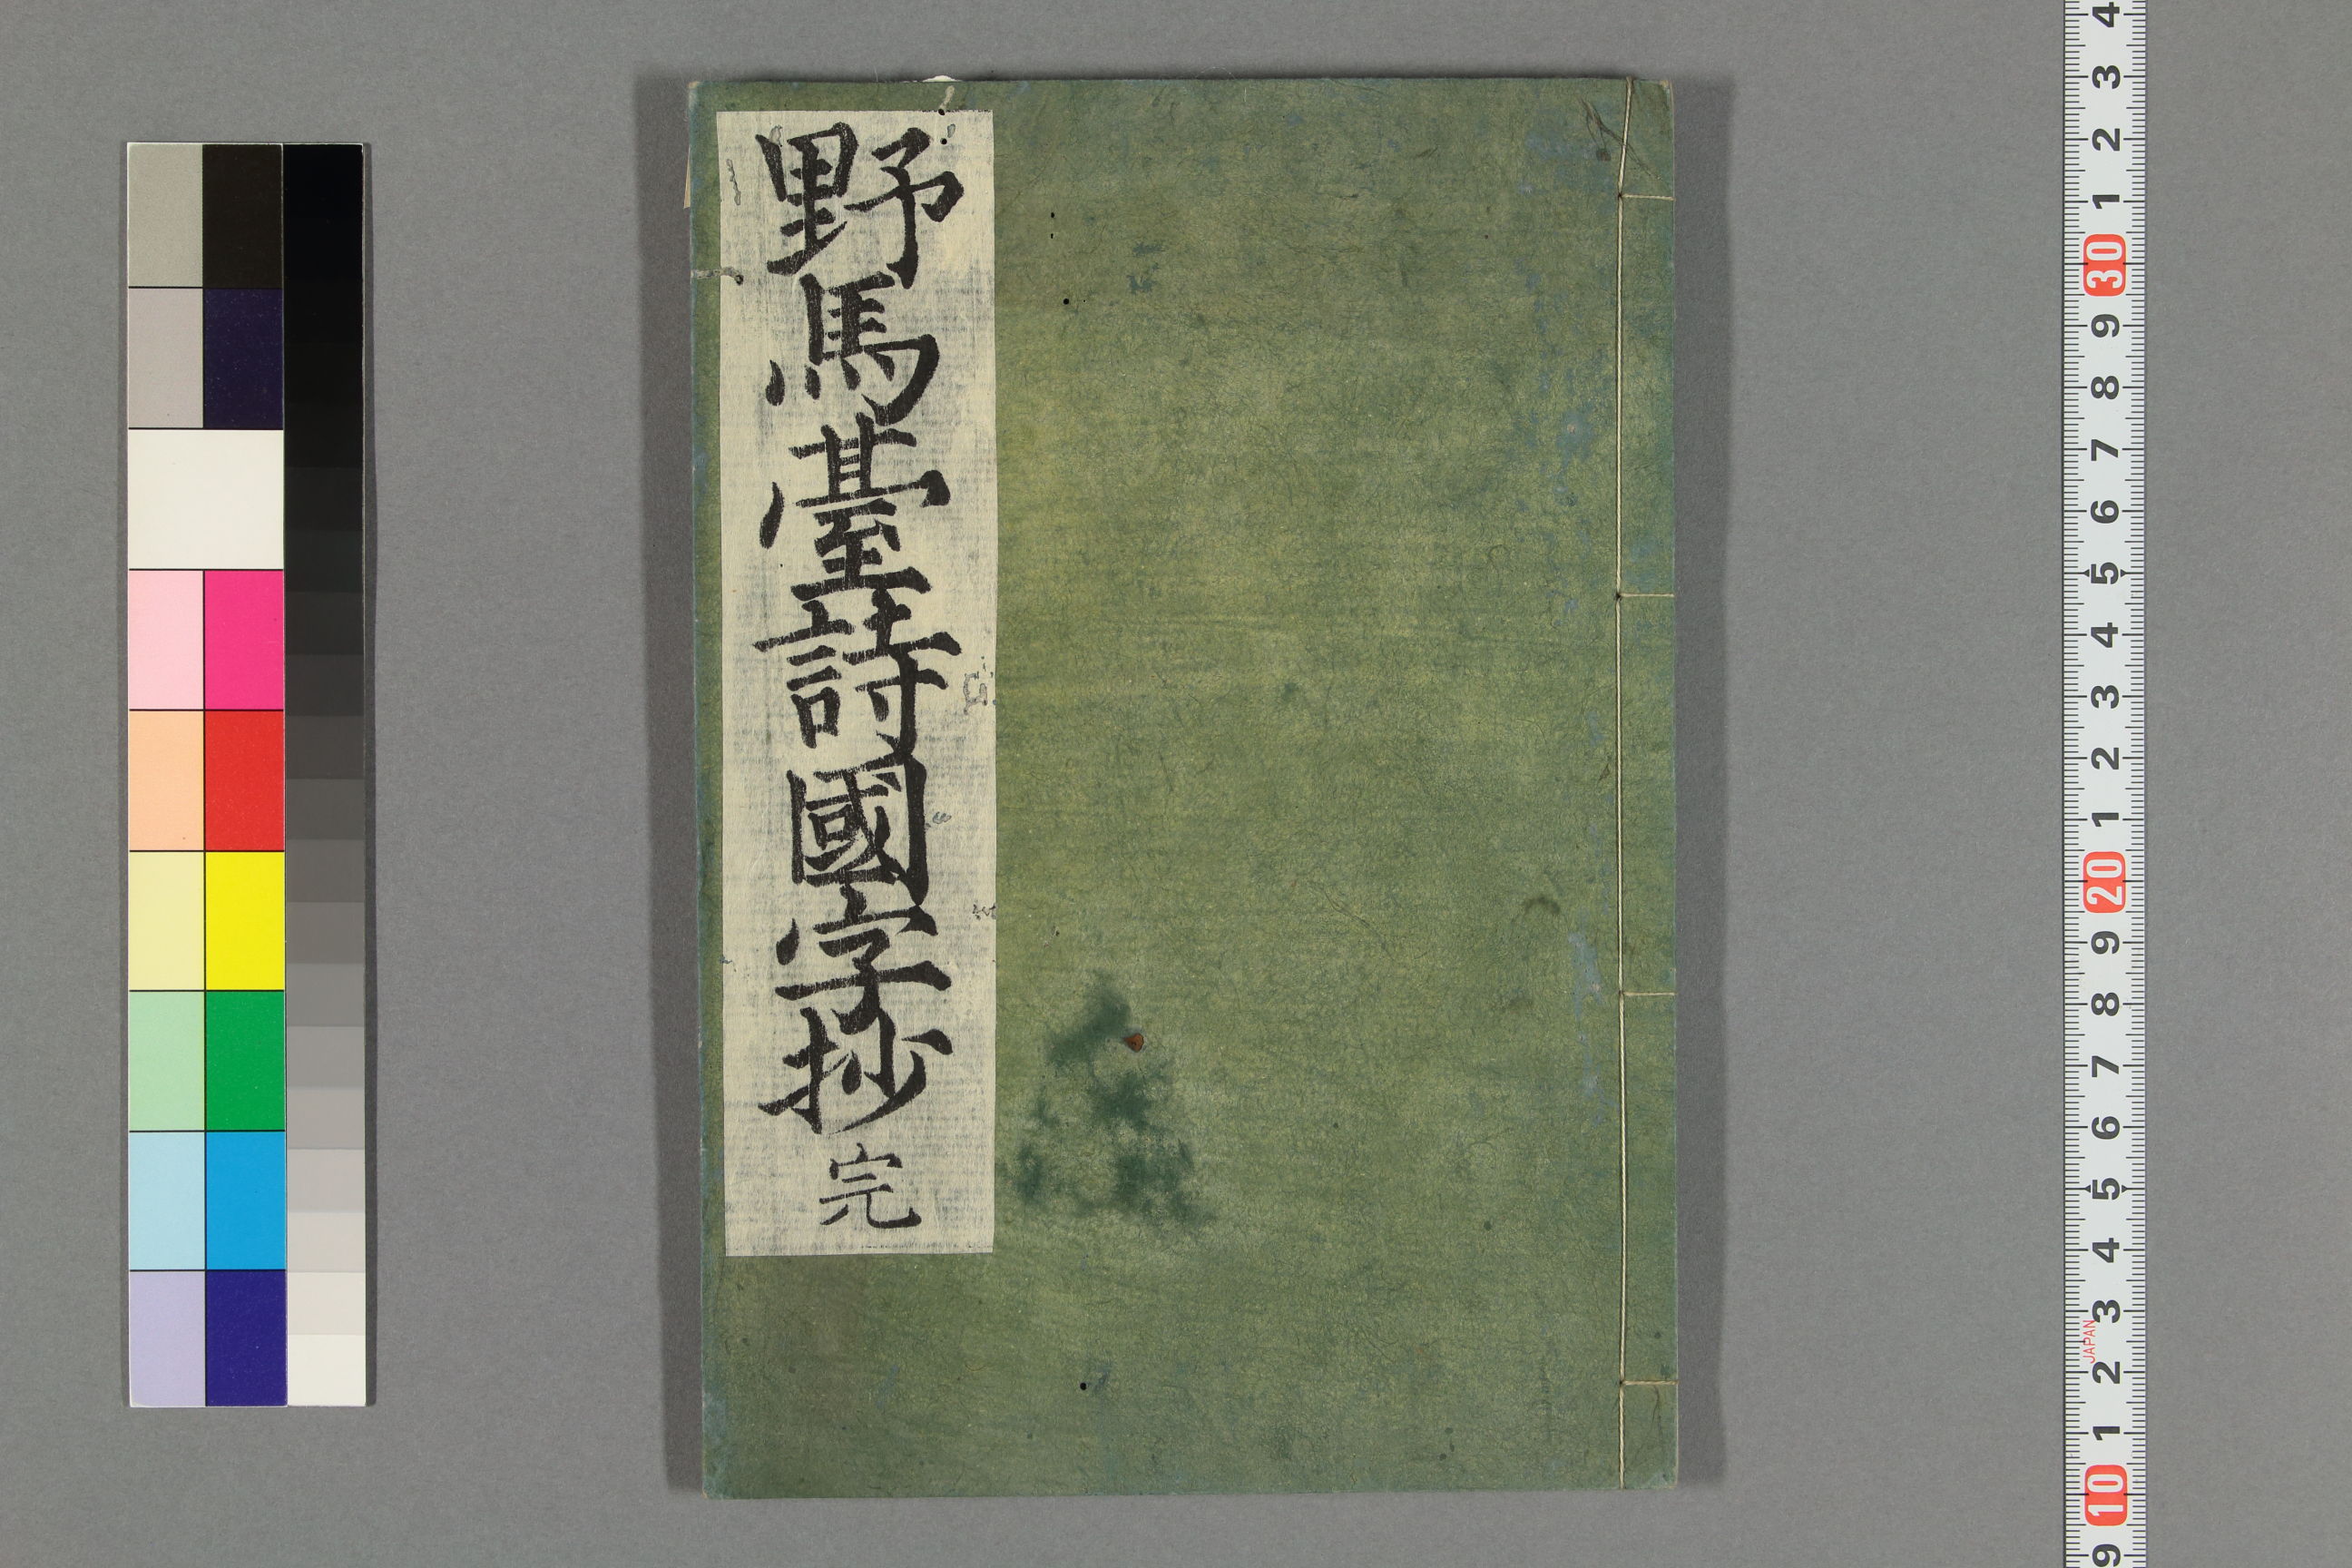 野馬臺詩國字抄 完
4
3
2
1
30
9
8
7
6
5
4
3
2
1
20
9
8
7
6
5
4
3
JAPAN
2
1
10
9